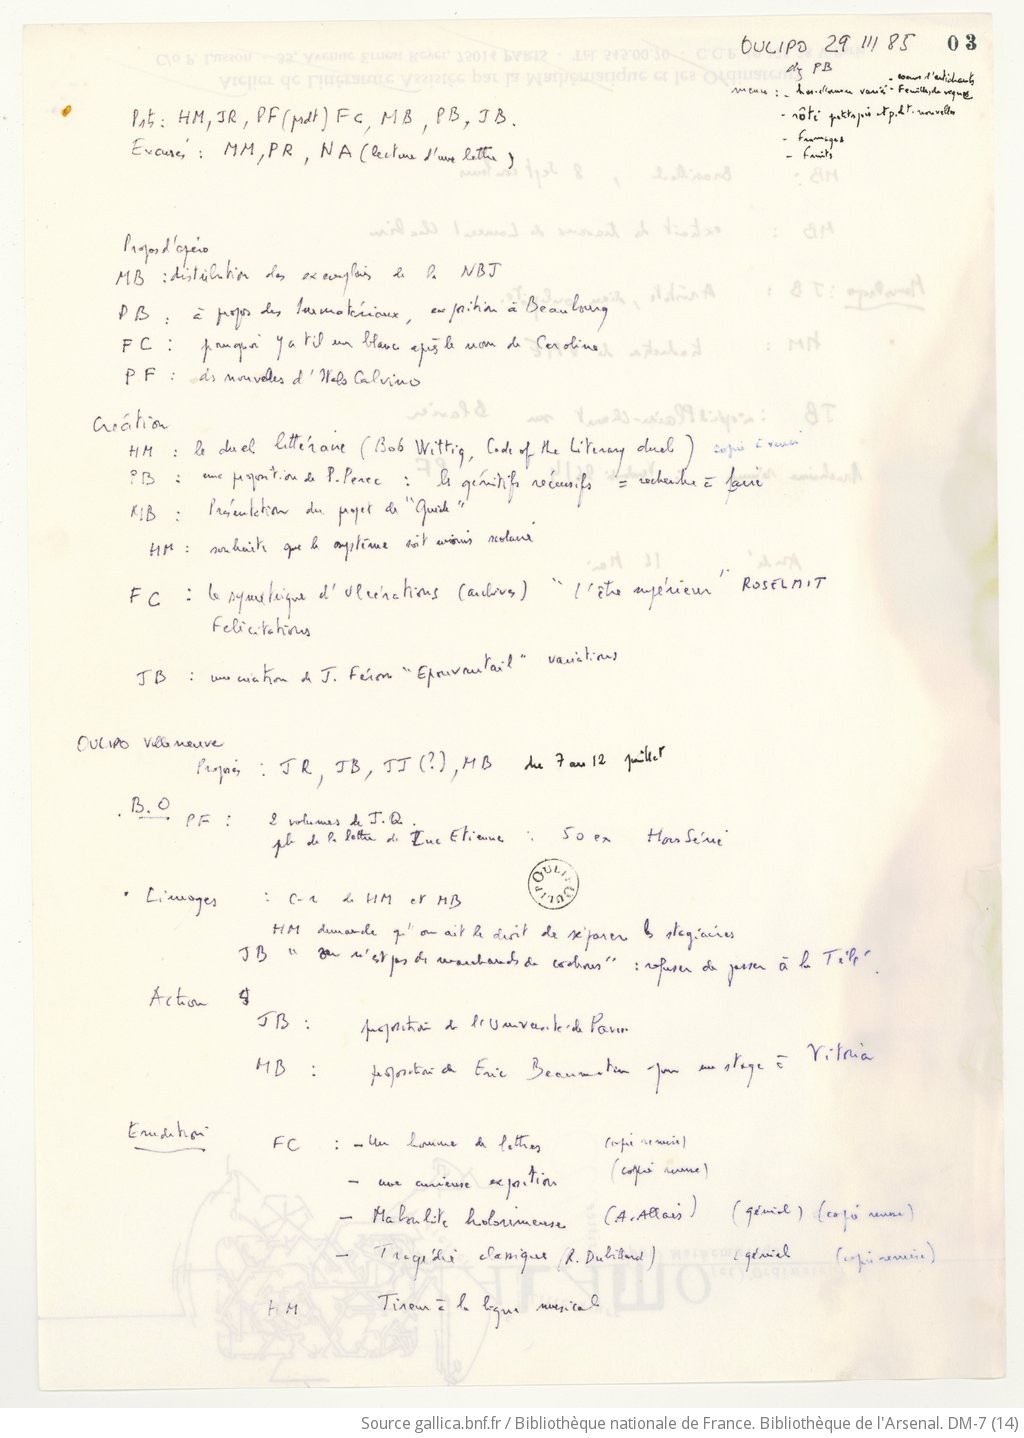 OULIPO 29 III 85 03
chez PB
menu : - hors-d'oeuvre variés - coeurs d'artichauts
- Feuilles de vignes
- rôti petits pois et p. de t. nouvelles
- Fromages
- Fruits
Psts : HM, JR, PF (psdt) FC, MB, PB, JB.
Excusés : MM, PR, NA (lecture d'une lettre)
Propos d'apéro
MB : distribution des exemplaires de la NBJ
PB : à propos des Immatériaux, exposition à Beaubourg
FC : pourquoi y a t'il un blanc après le nom de Caroline
PF : ds nouvelles d'Italo Calvino
Création
HM : le duel littéraire (Bob Wittig, Code of the Literary duel) copie à venir
PB : une proposition de P. Perec : les génitifs récursifs = recherche à faire
MB : Présentation du projet de "Guide"
HM : souhaite que le système soit moins scolaire
FC : le symétrique d'Ulcérations (archives) "l'être supérieur" ROSELMIT
Félicitations
JB : une création de J. Féron "Epouvantail" variations
OULIPO Villeneuve
Proposés : JR, JB, JJ (?), MB du 7 au 12 juillet
. B.O PF : 2 volumes de J.Q.
pb de la lettre de Luc Etienne : 50 ex Hors Série
OULIPO OULIPO
. Limoges : C-r de HM et MB
HM demande qu'on ait le droit de séparer les stagiaires
JB " on n'est pas ds marchands de cochons" : refuser de passer à la Télé.
Action
JB : proposition de l'Université de Pavie
MB : proposition de Eric Beaumatin pour un stage à Vitoria
Erudition
FC : - Un homme de lettres (copie remise)
- une curieuse exposition (copie remise)
- Maboulite holorimeuse (A. Allais) (génial) (copie remise)
- Tragédie classique (R. Dubillard) (génial (copie remise)
HM Tireur à la ligne musical
Source gallica.bnf.fr / Bibliothèque nationale de France. Bibliothèque de l'Arsenal. DM-7 (14)